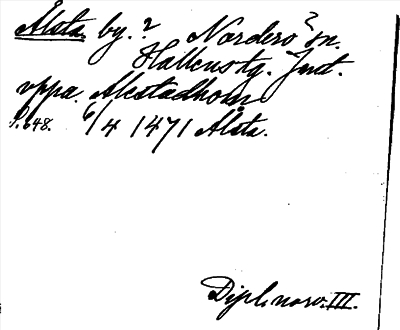 Ålsta by. ? Norderö sn.
Hallens tg. Jmt.
uppa. Alestadhom
S. 648. 6/4 1471 Alsta.
Dipl. norv. III.